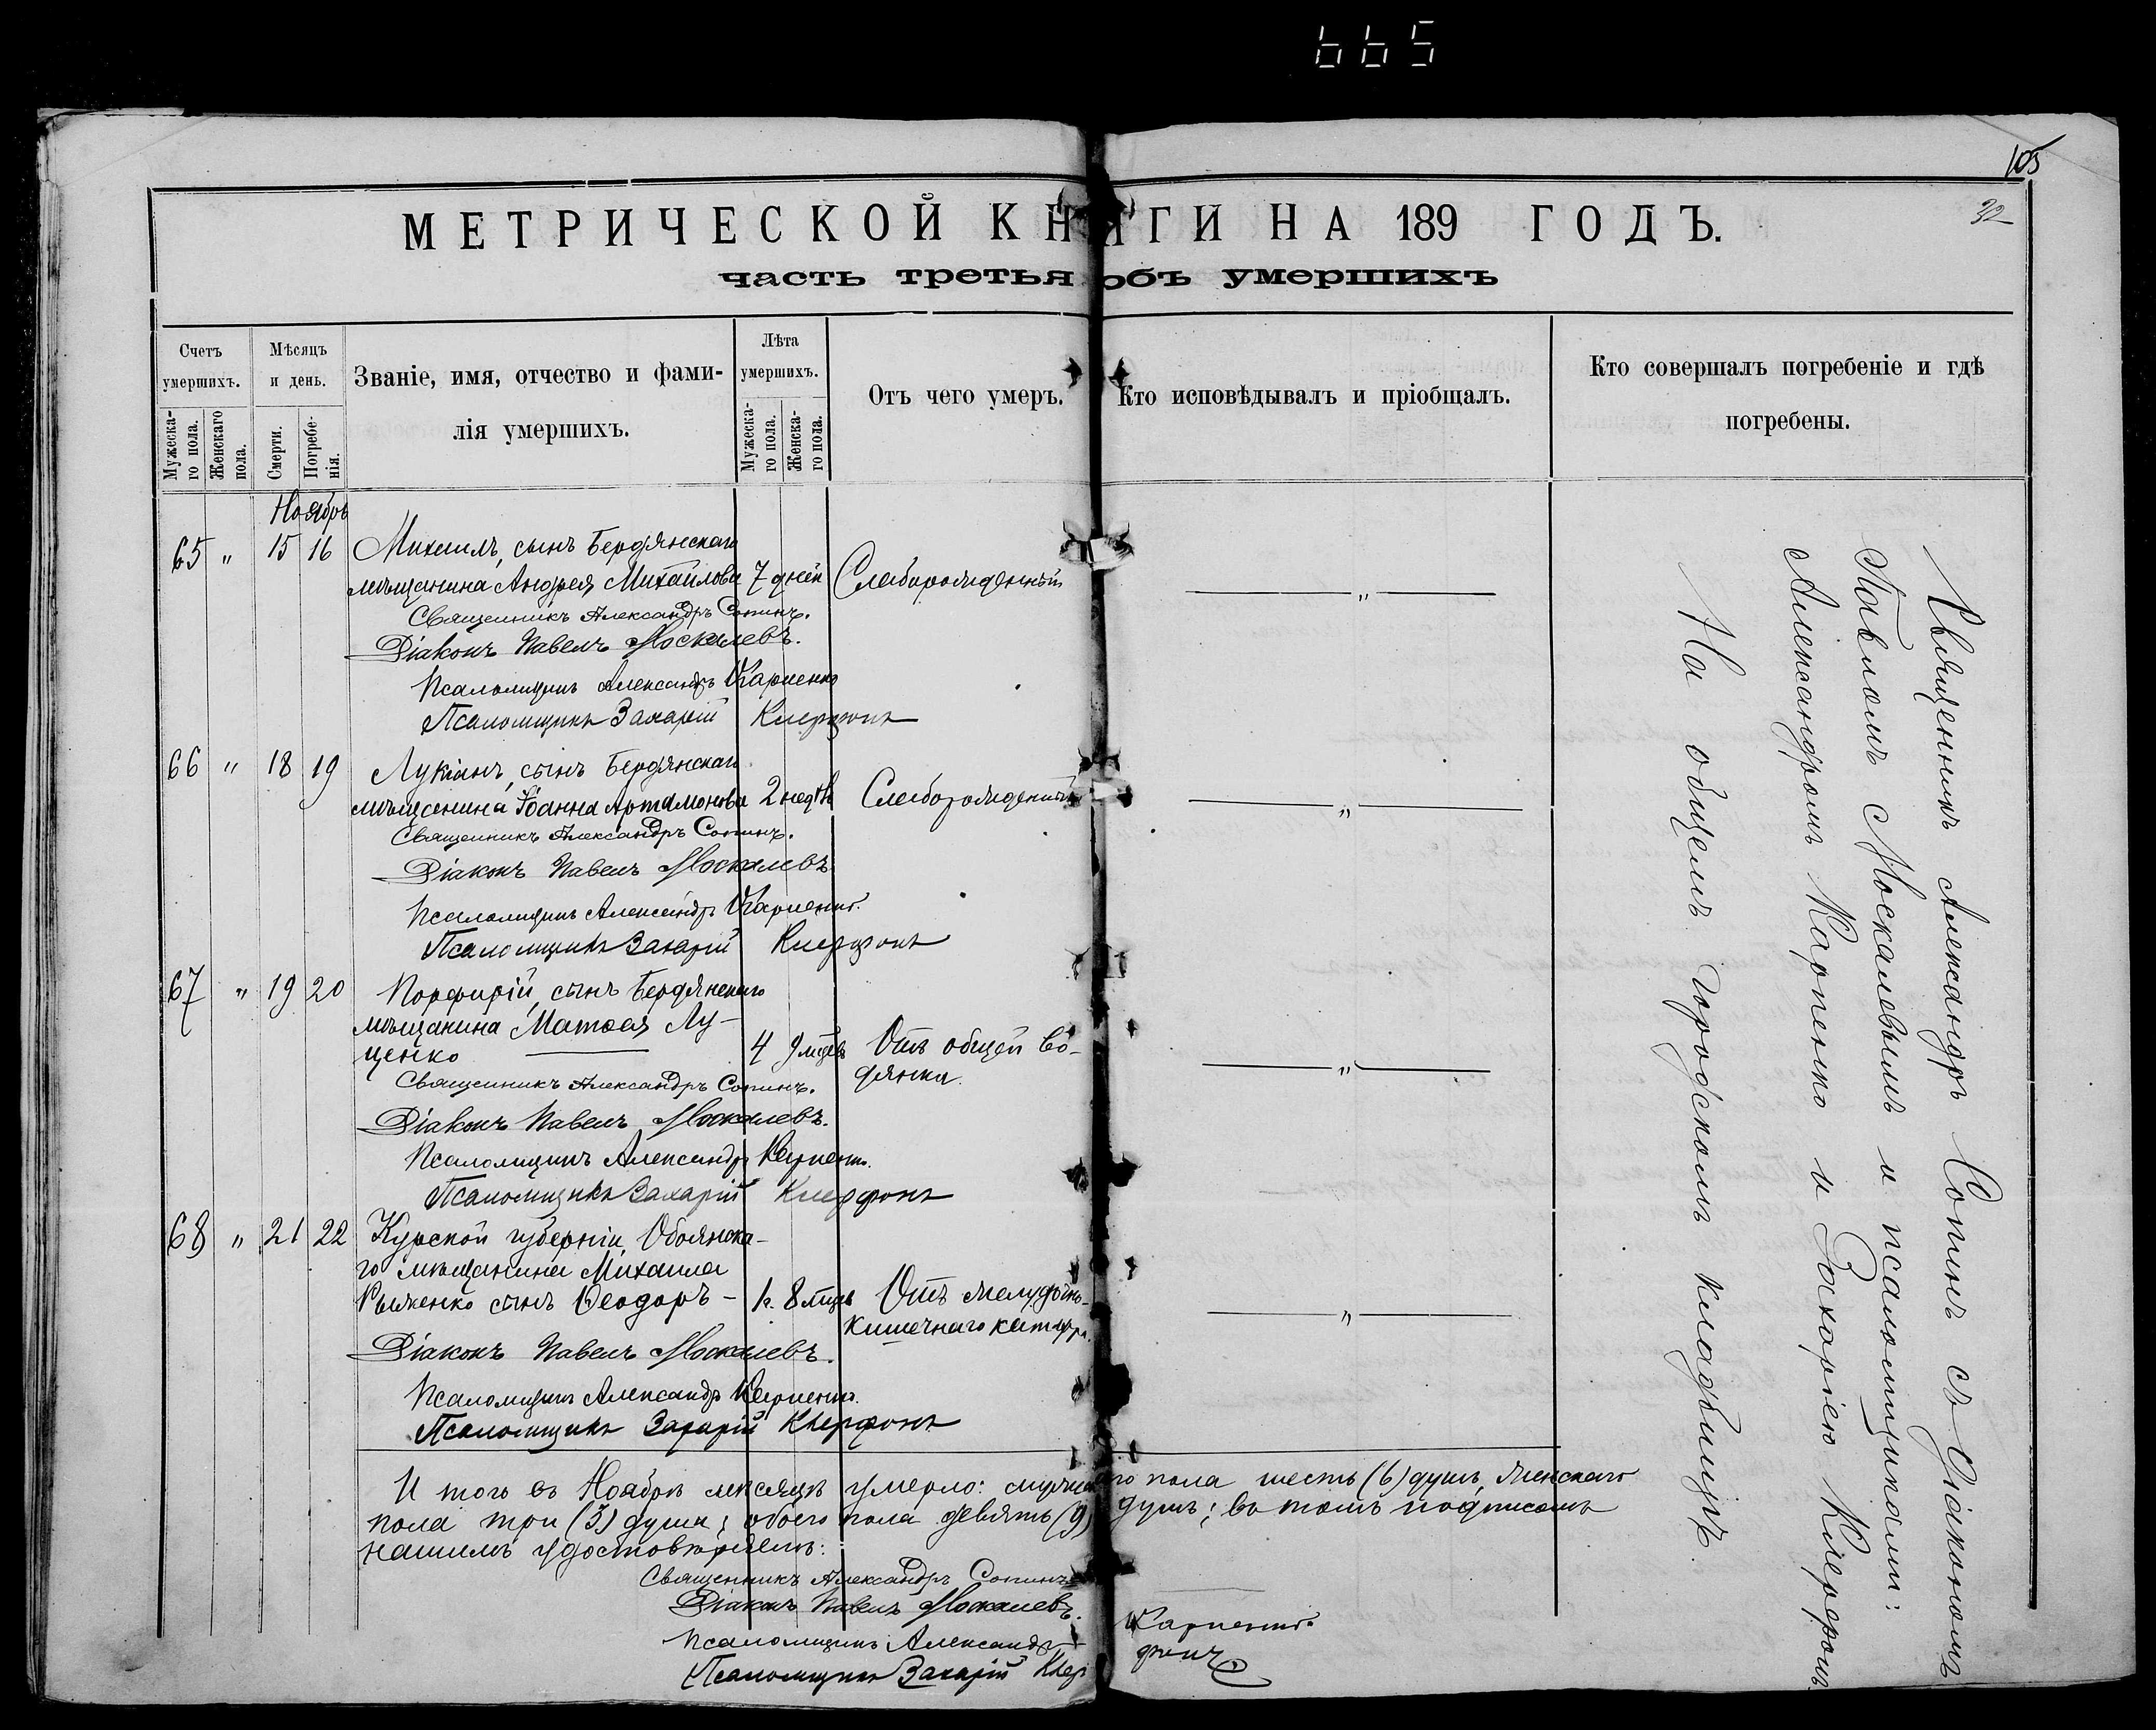 665
105
32
МЕТРИЧЕСКОЙ КНИГИ НА 189 ГОДЪ.
часть третья объ умершихъ
Счетъ умершихъ.
Мужеска-го пола.
Женскаго пола.
Мѣсяцъ и день.
Смерти.
Погребе-нія.
Званіе, имя, отчество и фами-
лія умершихъ.
Лѣта умершихъ.
Мужеска-го пола.
Женска-го пола.
Отъ чего умеръ.
Кто исповѣдывалъ и пріобщалъ.
Кто совершалъ погребеніе и гдѣ
погребены.
Ноябрь
65 " 15 16 Михаилъ, сынъ Бердянскаго
мѣщанина Андрея Михайлова 7 дней Слаборожденный "
Священникъ Александръ Сопинъ.
Діаконъ Павелъ Москалевъ.
Псаломщикъ Александръ Карпенко
Псаломщикъ Захарій Клерфонъ
66 " 18 19 Лукіанъ, сынъ Бердянскаго
мѣщанина Іоанна Артамонова 2 недѣл Слаборожденный "
Священникъ Александръ Сопинъ.
Діаконъ Павелъ Москалевъ
Псаломщикъ Александръ Карпенко.
Псаломщикъ Захарій Клерфонъ
67 " 19 20 Порфирій, сынъ Бердянскаго
мѣщанина Матѳея Лу-
ценко 4 9 мцев Отъ общей во-
дянки. "
Священникъ Александръ Сопинъ.
Діаконъ Павелъ Москалевъ.
Псаломщикъ Александръ Карпенко.
Псаломщикъ Захарій Клерфонъ
68 " 21 22 Курской губерніи, Обоянска-
го мѣщанина Михаила
Рыженко сынъ Ѳеодоръ - 1 г. 8 мцев Отъ желудочно-
кишечнаго катарра. "
Діаконъ Павелъ Москалевъ.
Псаломщикъ Александръ Карпенко.
Псаломщикъ Захарій Клерфонъ
И того въ Ноябрѣ мѣсяцѣ умерло: мужескаго пола шесть (6) душъ, женскаго
пола три (3) души; обоего пола девять (9) душъ; въ томъ подписомъ
нашимъ удостовѣряемъ:
Священникъ Александръ Сопинъ
Діаконъ Павелъ Москалевъ.
Псаломщикъ Александръ Карпенко.
Псаломщикъ Захарій Клерфонъ
Священникъ Александръ Сопинъ съ діакономъ
Павломъ Москалевымъ и псаломщиками:
Александромъ Карпенко и Захаріею Клерфономъ
На общемъ городскомъ кладбищѣ.